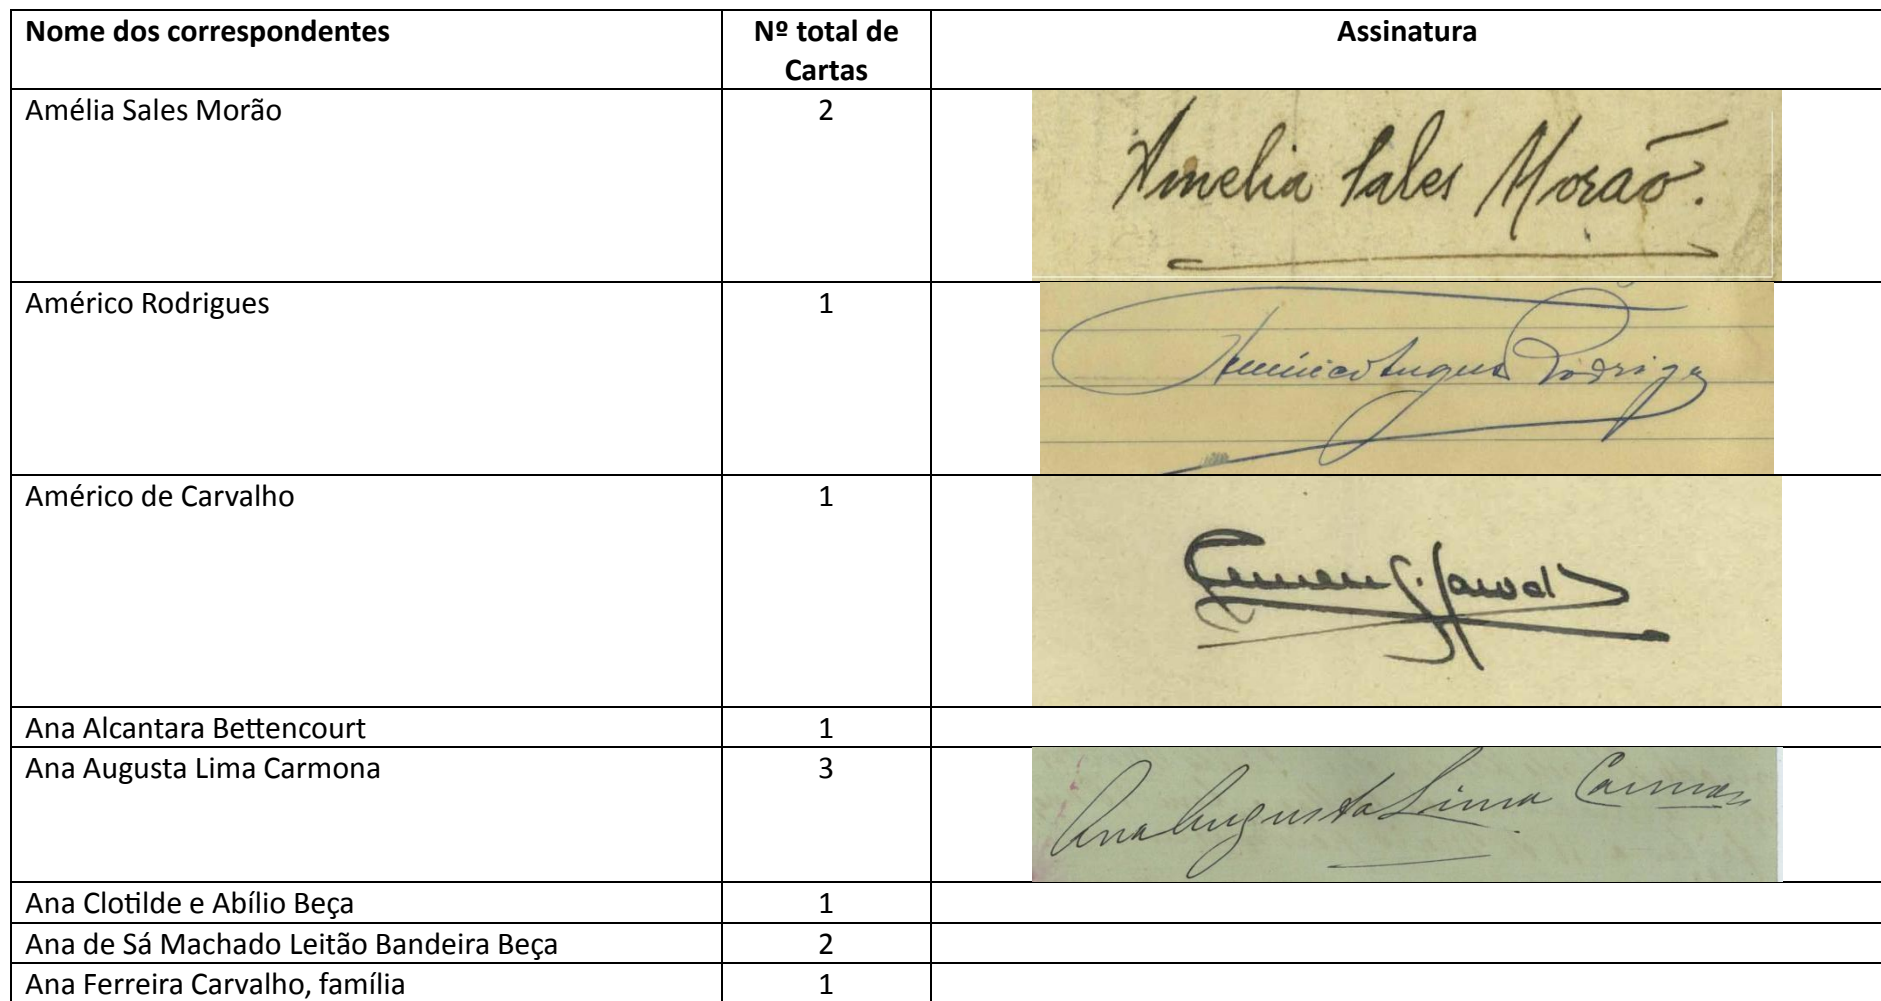 Nome dos correspondentes
Nº total de Cartas
Assinatura
Amélia Sales Morão
2
Amelia Sales Morão.
Américo Rodrigues
1
Américo Augusto Rodrigues
Américo de Carvalho
1
Ana Alcantara Bettencourt
1
Ana Augusta Lima Carmona
3
Ana Augusta Lima Carmona
Ana Clotilde e Abílio Beça
1
Ana de Sá Machado Leitão Bandeira Beça
2
Ana Ferreira Carvalho, família
1